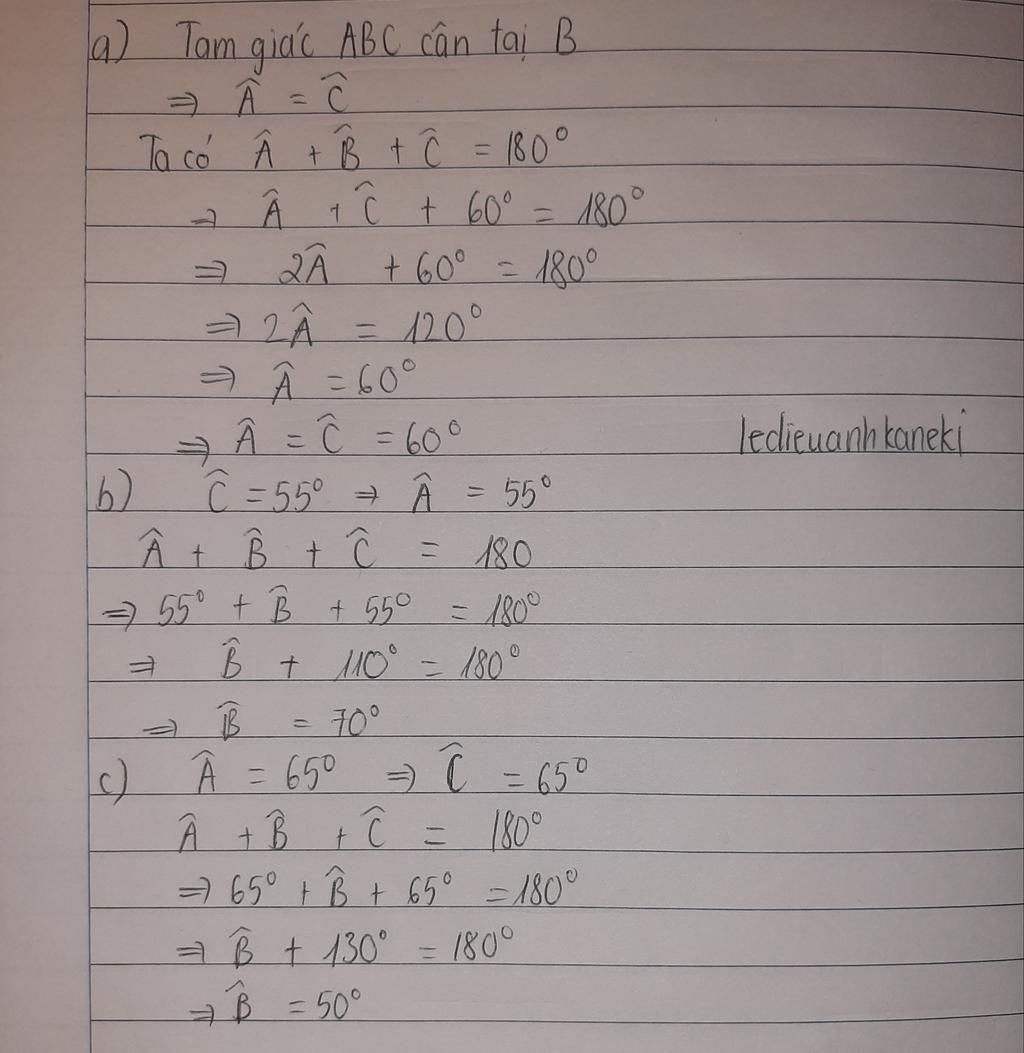 a) Tam giác ABC cân tại B
⇒ Â = Ĉ
Ta có Â + B̂ + Ĉ = 180°
⇒ Â + Ĉ + 60° = 180°
⇒ 2Â + 60° = 180°
⇒ 2Â = 120°
⇒ Â = 60°
⇒ Â = Ĉ = 60° ledieuanhkaneki
b) Ĉ = 55° ⇒ Â = 55°
Â + B̂ + Ĉ = 180
⇒ 55° + B̂ + 55° = 180°
⇒ B̂ + 110° = 180°
⇒ B̂ = 70°
c) Â = 65° ⇒ Ĉ = 65°
Â + B̂ + Ĉ = 180°
⇒ 65° + B̂ + 65° = 180°
⇒ B̂ + 130° = 180°
⇒ B̂ = 50°